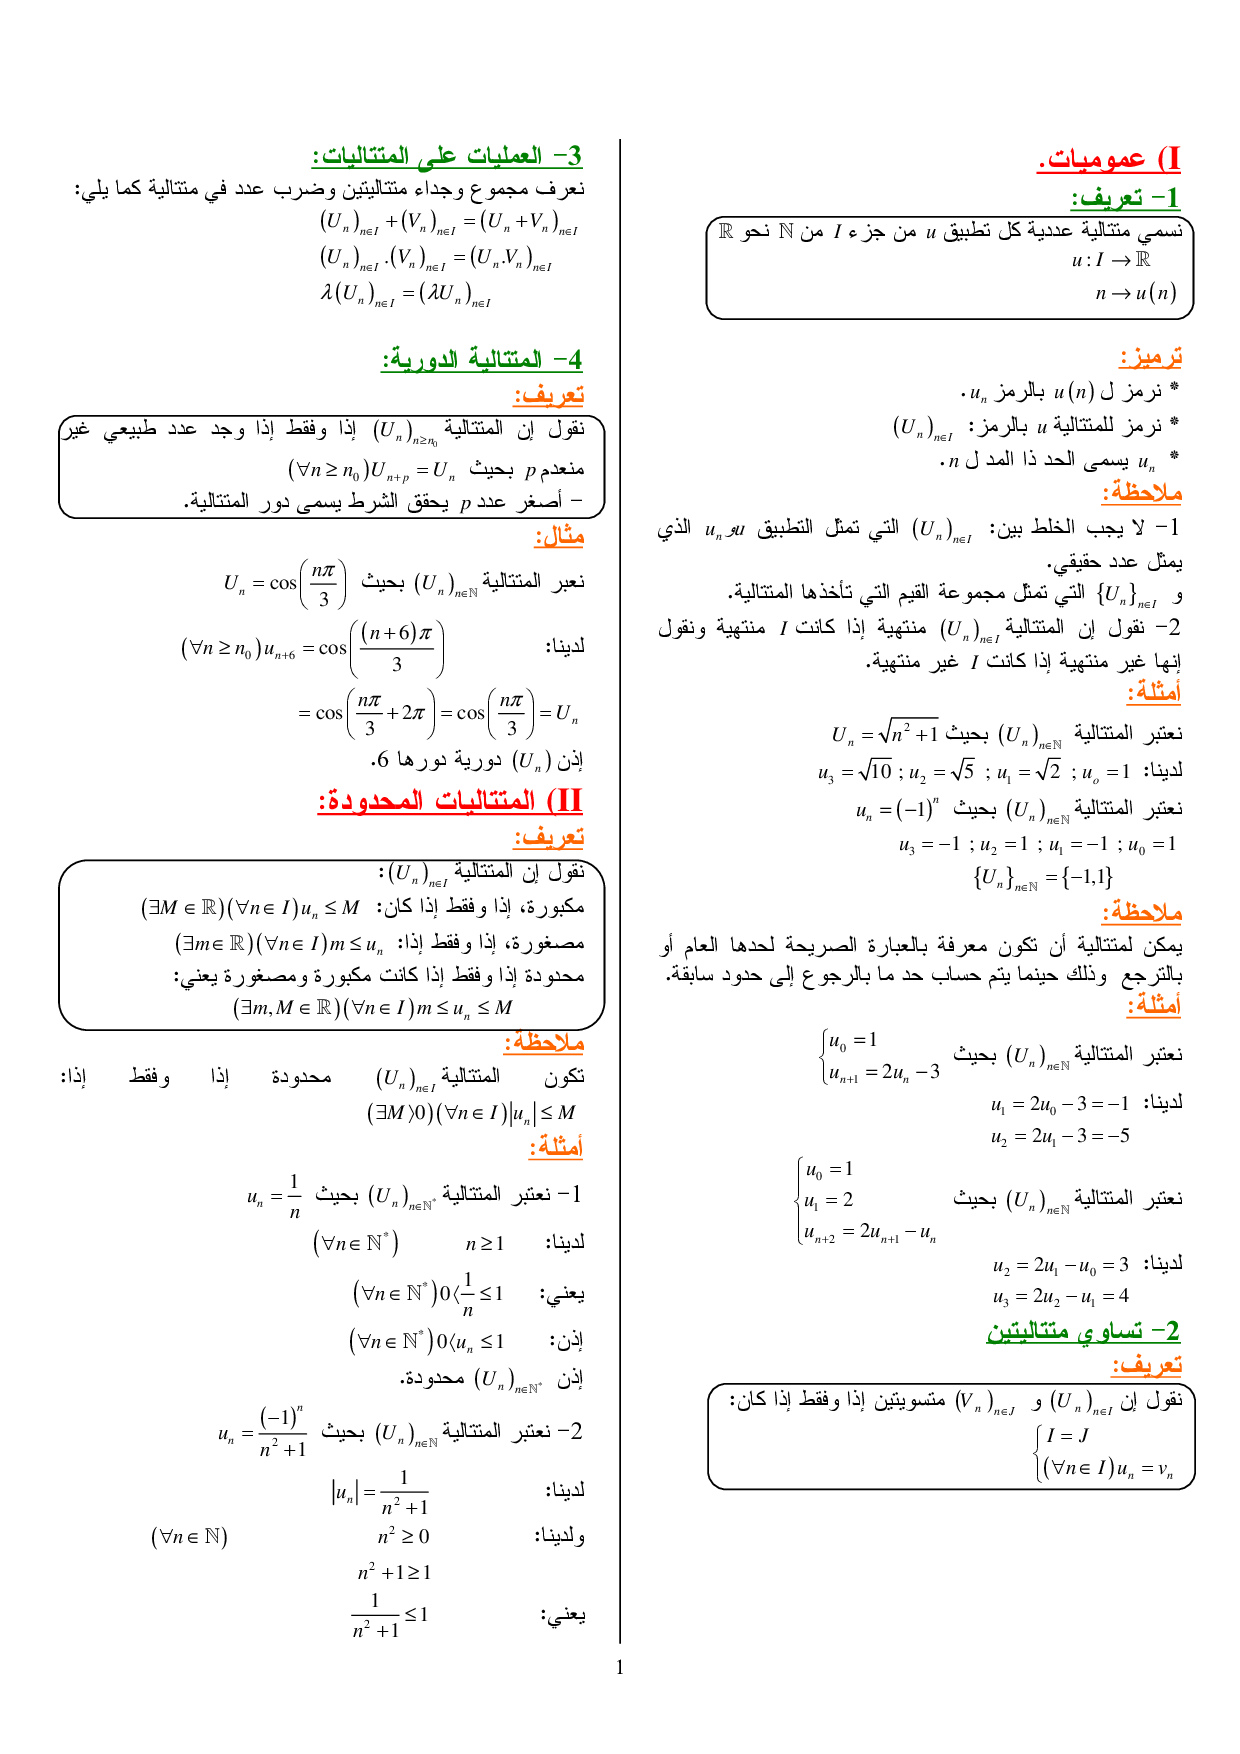 I) عموميات.
1- تعريف:
نسمي متتالية عددية كل تطبيق u من جزء I من ℕ نحو ℝ
u : I → ℝ
n → u(n)
ترميز:
* نرمز ل u(n) بالرمز uₙ .
* نرمز للمتتالية u بالرمز: (Uₙ)ₙ∈I
* uₙ يسمى الحد ذا المد ل n.
ملاحظة:
1- لا يجب الخلط بين: (Uₙ)ₙ∈I التي تمثل التطبيق u و uₙ الذي
يمثل عدد حقيقي.
و {Uₙ}ₙ∈I التي تمثل مجموعة القيم التي تأخذها المتتالية.
2- نقول إن المتتالية (Uₙ)ₙ∈I منتهية إذا كانت I منتهية ونقول
إنها غير منتهية إذا كانت I غير منتهية.
أمثلة:
نعتبر المتتالية (Uₙ)ₙ∈ℕ بحيث Uₙ = √(n² + 1)
لدينا: u₃ = √10 ; u₂ = √5 ; u₁ = √2 ; uₒ = 1
نعتبر المتتالية (Uₙ)ₙ∈ℕ بحيث uₙ = (−1)ⁿ
u₃ = −1 ; u₂ = 1 ; u₁ = −1 ; u₀ = 1
{Uₙ}ₙ∈ℕ = {−1,1}
ملاحظة:
يمكن لمتتالية أن تكون معرفة بالعبارة الصريحة لحدها العام أو
بالترجع وذلك حينما يتم حساب حد ما بالرجوع إلى حدود سابقة.
أمثلة:
نعتبر المتتالية (Uₙ)ₙ∈ℕ بحيث { u₀ = 1
uₙ₊₁ = 2uₙ − 3
لدينا: u₁ = 2u₀ − 3 = −1
u₂ = 2u₁ − 3 = −5
نعتبر المتتالية (Uₙ)ₙ∈ℕ بحيث { u₀ = 1
u₁ = 2
uₙ₊₂ = 2uₙ₊₁ − uₙ
لدينا: u₂ = 2u₁ − u₀ = 3
u₃ = 2u₂ − u₁ = 4
2- تساوي متتاليتين
تعريف:
نقول إن (Uₙ)ₙ∈I و (Vₙ)ₙ∈J متسويتين إذا وفقط إذا كان:
{ I = J
(∀n ∈ I) uₙ = vₙ
3- العمليات على المتتاليات:
نعرف مجموع وجداء متتاليتين وضرب عدد في متتالية كما يلي:
(Uₙ)ₙ∈I + (Vₙ)ₙ∈I = (Uₙ + Vₙ)ₙ∈I
(Uₙ)ₙ∈I .(Vₙ)ₙ∈I = (Uₙ.Vₙ)ₙ∈I
λ(Uₙ)ₙ∈I = (λUₙ)ₙ∈I
4- المتتالية الدورية:
تعريف:
نقول إن المتتالية (Uₙ)ₙ≥n₀ إذا وفقط إذا وجد عدد طبيعي غير
منعدم p بحيث (∀n ≥ n₀) Uₙ₊ₚ = Uₙ
- أصغر عدد p يحقق الشرط يسمى دور المتتالية.
مثال:
نعبر المتتالية (Uₙ)ₙ∈ℕ بحيث Uₙ = cos(nπ/3)
لدينا: (∀n ≥ n₀) uₙ₊₆ = cos((n + 6)π/3)
= cos(nπ/3 + 2π) = cos(nπ/3) = Uₙ
إذن (Uₙ) دورية دورها 6.
II) المتتاليات المحدودة:
تعريف:
نقول إن المتتالية (Uₙ)ₙ∈I :
مكبورة، إذا وفقط إذا كان: (∃M ∈ ℝ)(∀n ∈ I) uₙ ≤ M
مصغورة، إذا وفقط إذا: (∃m ∈ ℝ)(∀n ∈ I) m ≤ uₙ
محدودة إذا وفقط إذا كانت مكبورة ومصغورة يعني:
(∃m, M ∈ ℝ)(∀n ∈ I) m ≤ uₙ ≤ M
ملاحظة:
تكون المتتالية (Uₙ)ₙ∈I محدودة إذا وفقط إذا:
(∃M ⟩0)(∀n ∈ I)|uₙ| ≤ M
أمثلة:
1- نعتبر المتتالية (Uₙ)ₙ∈ℕ* بحيث uₙ = 1/n
لدينا: n ≥ 1 (∀n ∈ ℕ*)
يعني: (∀n ∈ ℕ*) 0⟨ 1/n ≤ 1
إذن: (∀n ∈ ℕ*) 0⟨uₙ ≤ 1
إذن (Uₙ)ₙ∈ℕ* محدودة.
2- نعتبر المتتالية (Uₙ)ₙ∈ℕ بحيث uₙ = (−1)ⁿ/(n² + 1)
لدينا: |uₙ| = 1/(n² + 1)
ولدينا: n² ≥ 0 (∀n ∈ ℕ)
n² + 1 ≥ 1
يعني: 1/(n² + 1) ≤ 1
1